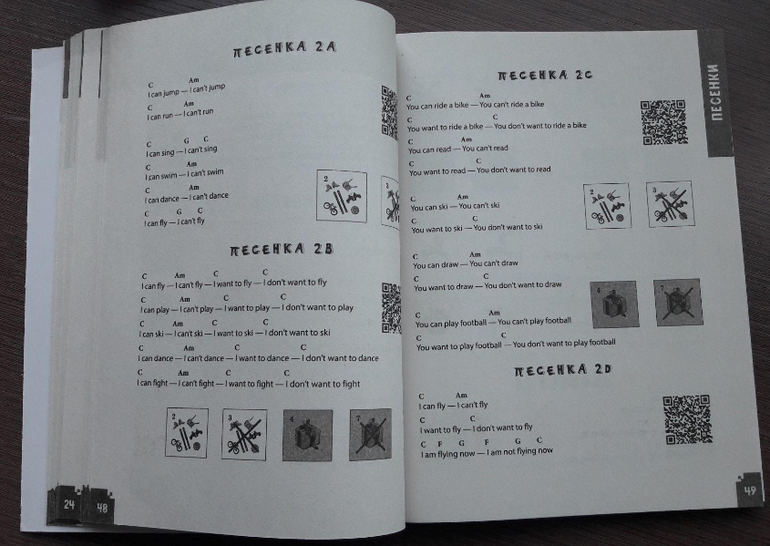 ПЕСЕНКА 2A
C Am
I can jump — I can't jump
C Am
I can run — I can't run
C G C
I can sing — I can't sing
C Am
I can swim — I can't swim
C Am
I can dance — I can't dance
C G C
I can fly — I can't fly
2
3
ПЕСЕНКА 2B
C Am C C
I can fly — I can't fly — I want to fly — I don't want to fly
C Am C C
I can play — I can't play — I want to play — I don't want to play
C Am C C
I can ski — I can't ski — I want to ski — I don't want to ski
C Am C C
I can dance — I can't dance — I want to dance — I don't want to dance
C Am C C
I can fight — I can't fight — I want to fight — I don't want to fight
2
3
7
24
48
ПЕСЕНКИ
ПЕСЕНКА 2C
C Am
You can ride a bike — You can't ride a bike
C C
You want to ride a bike — You don't want to ride a bike
C Am
You can read — You can't read
C C
You want to read — You don't want to read
C Am
You can ski — You can't ski
C C
You want to ski — You don't want to ski
2
3
C Am
You can draw — You can't draw
C C
You want to draw — You don't want to draw
C Am
You can play football — You can't play football
C C
You want to play football — You don't want to play football
ПЕСЕНКА 2D
C Am
I can fly — I can't fly
C C
I want to fly — I don't want to fly
C F G F G C
I am flying now — I am not flying now
49